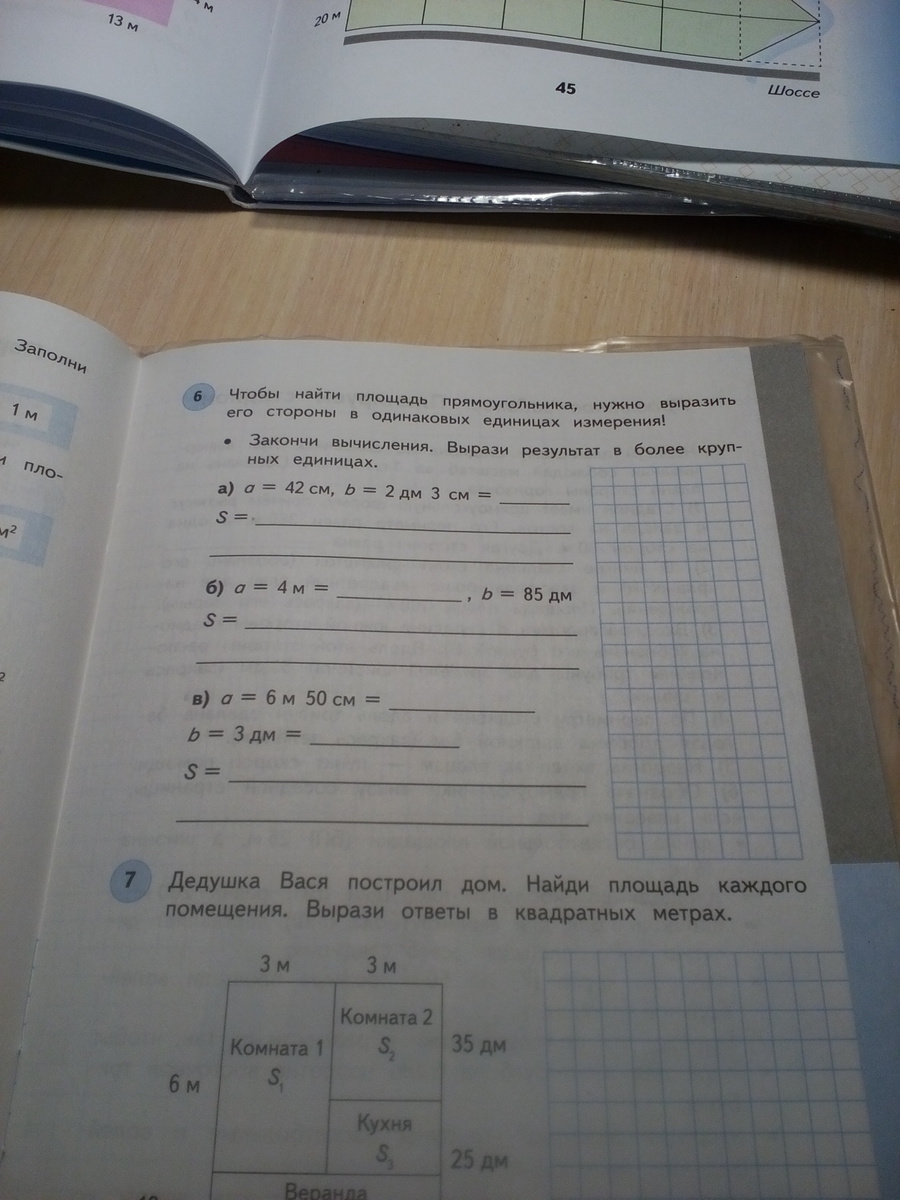 13 м
20 м
45
Шоссе
Заполни
1 м
пло-
м²
6 Чтобы найти площадь прямоугольника, нужно выразить
его стороны в одинаковых единицах измерения!
• Закончи вычисления. Вырази результат в более круп-
ных единицах.
а) a = 42 см, b = 2 дм 3 см = ________
S = ________
б) a = 4 м = ________, b = 85 дм
S = ________
в) a = 6 м 50 см = ________
b = 3 дм = ________
S = ________
7 Дедушка Вася построил дом. Найди площадь каждого
помещения. Вырази ответы в квадратных метрах.
3 м 3 м
Комната 2
S₂
35 дм
Комната 1
S₁
6 м
Кухня
S₃
25 дм
Веранда